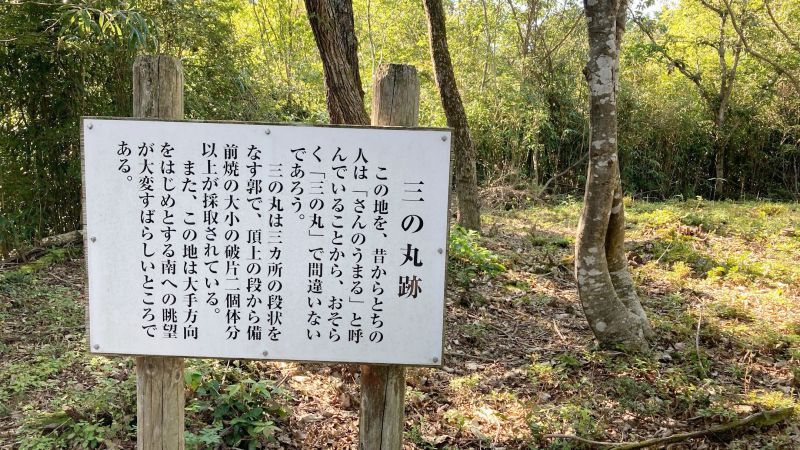 三の丸跡
この地を、昔からとちの
人は「さんのうまる」と呼
んでいることから、おそら
く「三の丸」で間違いない
であろう。
三の丸は三ヵ所の段状を
なす郭で、頂上の段から備
前焼の大小の破片二個体分
以上が採取されている。
また、この地は大手方向
をはじめとする南への眺望
が大変すばらしいところで
ある。